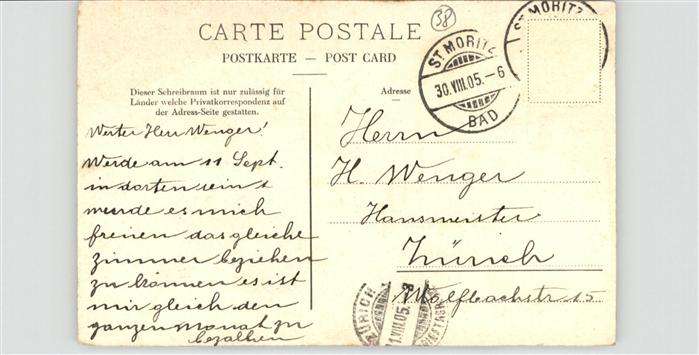 38
CARTE POSTALE
POSTKARTE — POST CARD
ST MORITZ
30.VIII.05.—6
BAD
ST MORITZ
Dieser Schreibraum ist nur zulässig für
Länder welche Privatkorrespondenz auf
der Adress-Seite gestatten.
Adresse
Werter Herr Wenger!
Werde am 11 Sept.
in dorten sein &
wurde es mich
freuen das gleiche
Zimmer beziehen
zu können es ist
mir gleich den
ganzen Monat zu
bezalhen
Herrn
H. Wenger
Hausmeister
Zürich
Wolfbachstr 15.
ZÜRICH
VIII.05.